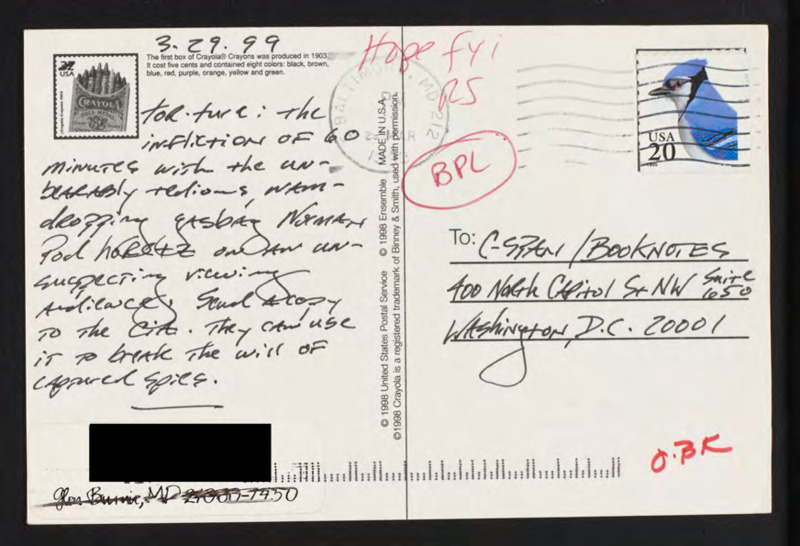 3.29.99
The first box of Crayola® Crayons was produced in 1903.
It cost five cents and contained eight colors: black, brown,
blue, red, purple, orange, yellow and green.
USA
CRAYOLA
tor·ture: the
infliction of 60
minutes with the un-
bearably tedious, name-
dropping gasbag Norman
Podhoretz on an un-
suspecting viewing
audience; Send a copy
to the CIA. They can use
it to break the will of
captured spies.
Glen Burnie, MD
© 1998 United States Postal Service © 1998 Ensemble MADE IN U.S.A.
©1998 Crayola is a registered trademark of Binney & Smith, used with permission.
Hope fyi
RS
BPL
BALTIMORE, MD 212
USA
20
To: C-SPAN/BOOKNOTES
400 North Capitol St NW Suite
650
Washington, D.C. 20001